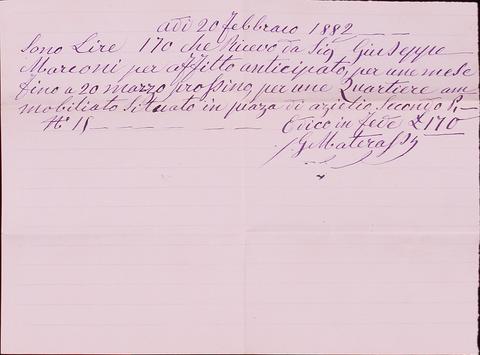 adi 20 Febbraio 1882
Sono Lire 170 che Ricevo da Sig Giuseppe
Marconi per affitto anticipato, per une mese
fino a 20 marzo prossino per une Quartiere am
mobiliato Situato in piaza di azielio Secondo P.
N° 15 Dicc in fede £ 170
G Materassi